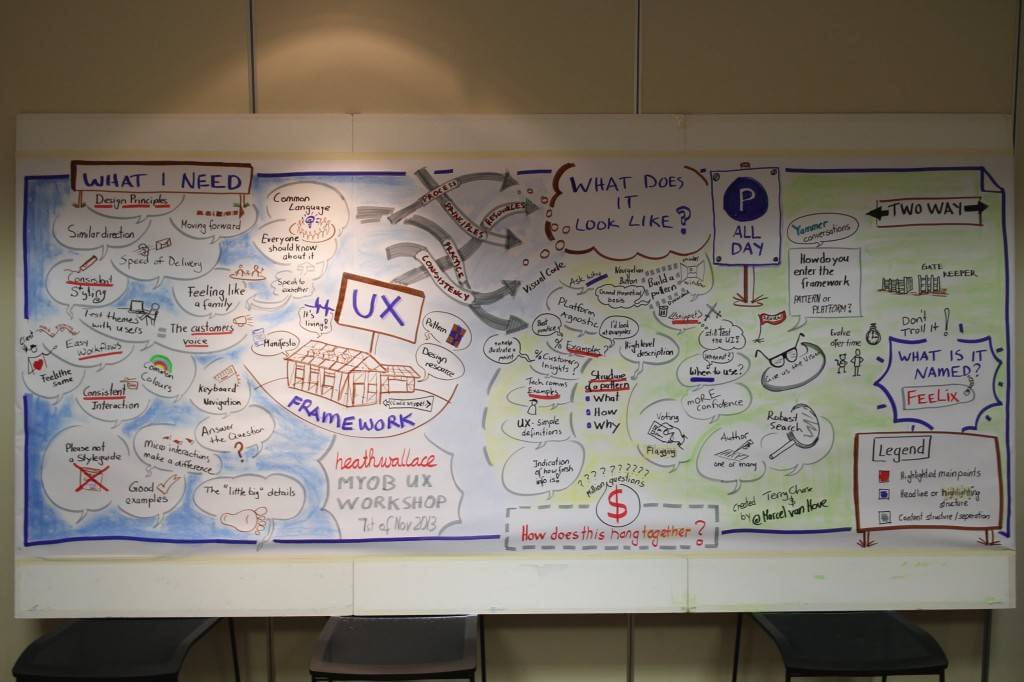 WHAT I NEED
Design Principles
Similar direction
Moving forward
Speed of Delivery
Consistent
Styling
Feeling like
a family
Common
Language
Everyone
should know
about it
Speak to
Test themes
with users
= The customers
voice
Easy
Workflows
Feels the
same
Common
Colours
Consistent
Interaction
Keyboard
Navigation
Answer the
Question
?
Micro interactions
make a difference
Please not
a Styleguide
Good
examples
The "little big" details
#
It's
living!
Manifesto
UX
Pattern
Design
resource
FRAMEWORK
heathwallace
MYOB UX
WORKSHOP
7st of Nov 2013
PROCESS
PRINCIPLES
PERSONALES
PEOPLE
CONSISTENCY
WHAT DOES
IT
LOOK LIKE?
Visual Code
Ask why
Navigation
Button
Build a
pattern
Platform
Agnostic
Snippets
Best
practice
% Examples?
High level
description
% Customer
Insights?
Tech comms
Examples
Structure
to pattern
What
How
Why
UX - simple
definitions
Indication
of how fresh
info is?
still Test
the UI!
When to use?
more
Confidence
Voting
Flagging
Author
one or many
Robust
Search
? ? ? ? ? ? ? ? ?
million questions
$
How does this hang together?
P
ALL
DAY
Yammer
conversations
How do you
enter the
framework
PATTERN or
PLATFORM?
Give us the Vision
Evolve
over time
TWO WAY
GATE
KEEPER
Don't
Troll it!
WHAT IS IT
NAMED?
FEELiX
created
by
Terry Chork
&
@Marcel van Hove
Legend
Highlighted main points
Headline or highlighting
structure
Content structure / seperation